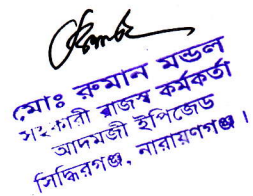 মোঃ রুমান মন্ডল
সহকারী রাজস্ব কর্মকর্তা
আদমজী ইপিজেড
সিদ্ধিরগঞ্জ, নারায়ণগঞ্জ।